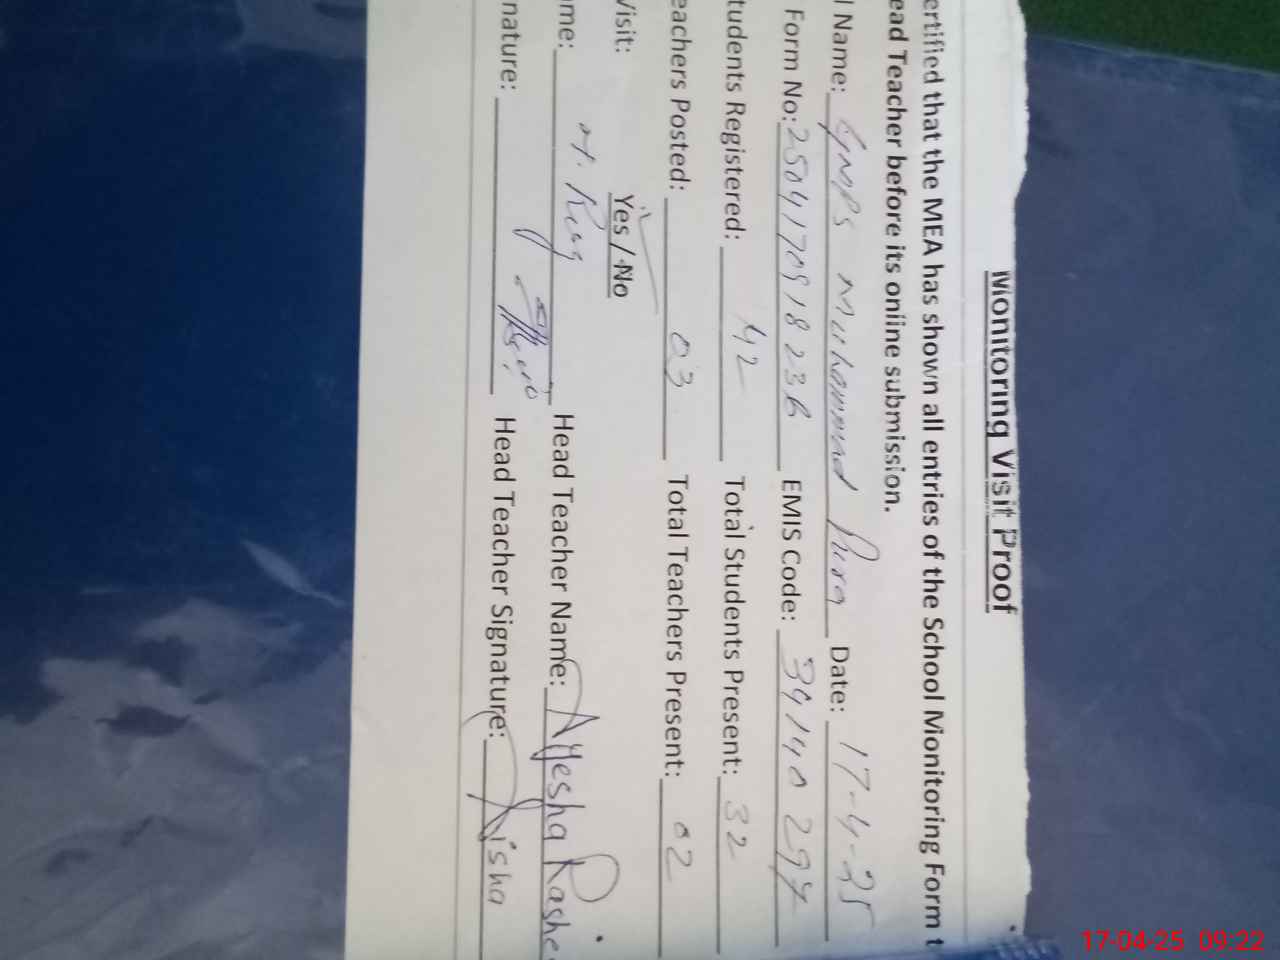 Monitoring Visit Proof
ertified that the MEA has shown all entries of the School Monitoring Form t
ead Teacher before its online submission.
l Name: GMPS Muhammad Pura Date: 17-4-25
Form No: EMIS Code:
tudents Registered: 42 Total Students Present: 32
eachers Posted: 03 Total Teachers Present: 02
Visit: Yes / No
ame: Head Teacher Name: Ayesha Rashe
nature: Head Teacher Signature: Aisha
17-04-25 09:22